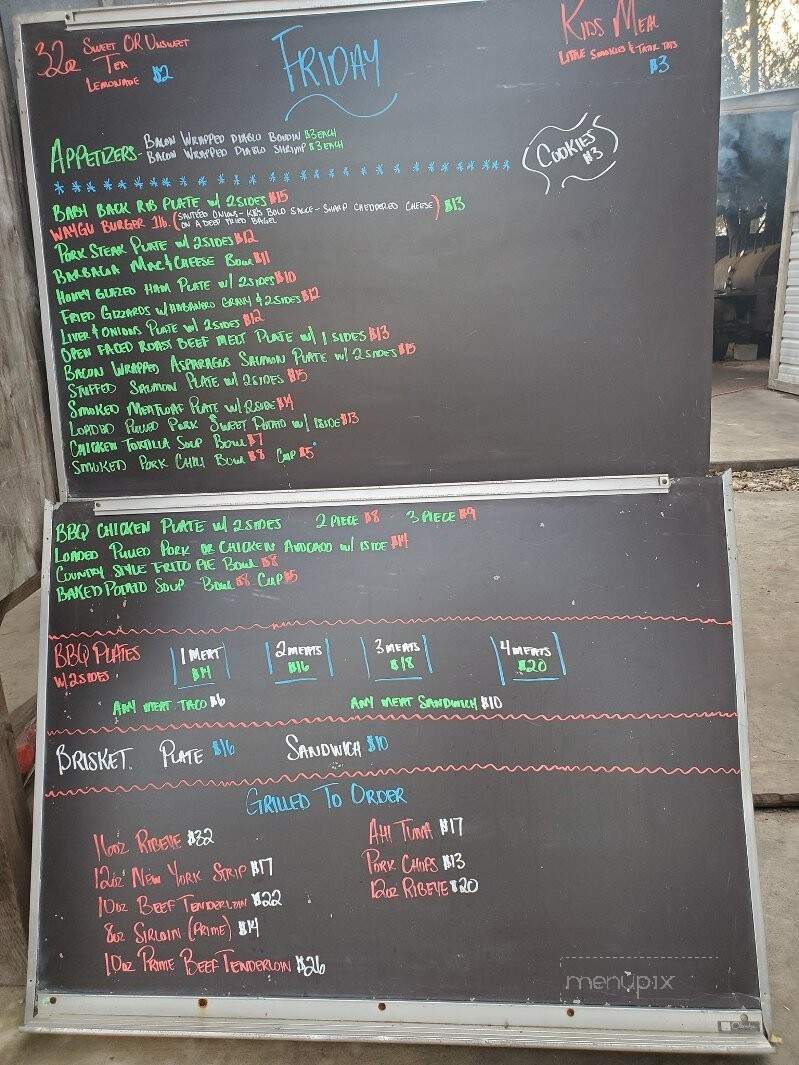 32oz Sweet or Unsweet
Tea
Lemonade $2
Friday
Kids Meal
Little Smokies & Tatr Tots
$3
Appetizers - Bacon Wrapped Diablo Boudin $3 each
Bacon Wrapped Diablo Shrimp $3 each
Cookies
$3
Baby Back Rib Plate w/ 2 sides $15
Waygu Burger 1lb. (Sautéed Onions - KB's Bold Sauce - Sharp Cheddered Cheese) $13
on a Deep Fried Bagel
Pork Steak Plate w/ 2 sides $12
Barbacoa Mac & Cheese Bowl $11
Honey Glazed Ham Plate w/ 2 sides $10
Fried Gizzards w/ Habanero Gravy & 2 sides $12
Liver & Onions Plate w/ 2 sides $12
Open Faced Roast Beef Melt Plate w/ 1 sides $13
Bacon Wrapped Asparagus Salmon Plate w/ 2 sides $15
Stuffed Salmon Plate w/ 2 sides $15
Smoked Meatloaf Plate w/ 2 side $14
Loaded Pulled Pork Sweet Potato w/ 1 side $13
Chicken Tortilla Soup Bowl $7
Smoked Pork Chili Bowl $8 Cup $5
BBQ Chicken Plate w/ 2 sides 2 piece $8 3 piece $9
Loaded Pulled Pork or Chicken Avocado w/ 1 side $14
Country Style Frito Pie Bowl $8
Baked Potato Soup Bowl $8 Cup $5
BBQ Plates 1 Meat 2 Meats 3 Meats 4 Meats
w/ 2 sides $14 $16 $18 $20
Any Meat Taco $6 Any Meat Sandwich $10
Brisket. Plate $16 Sandwich $10
Grilled To Order
16oz Ribeye $32
12oz New York Strip $17
10oz Beef Tenderloin $22
8oz Sirloin (Prime) $14
10oz Prime Beef Tenderloin $26
Ahi Tuna $17
Pork Chops $13
12oz Ribeye $20
menupix